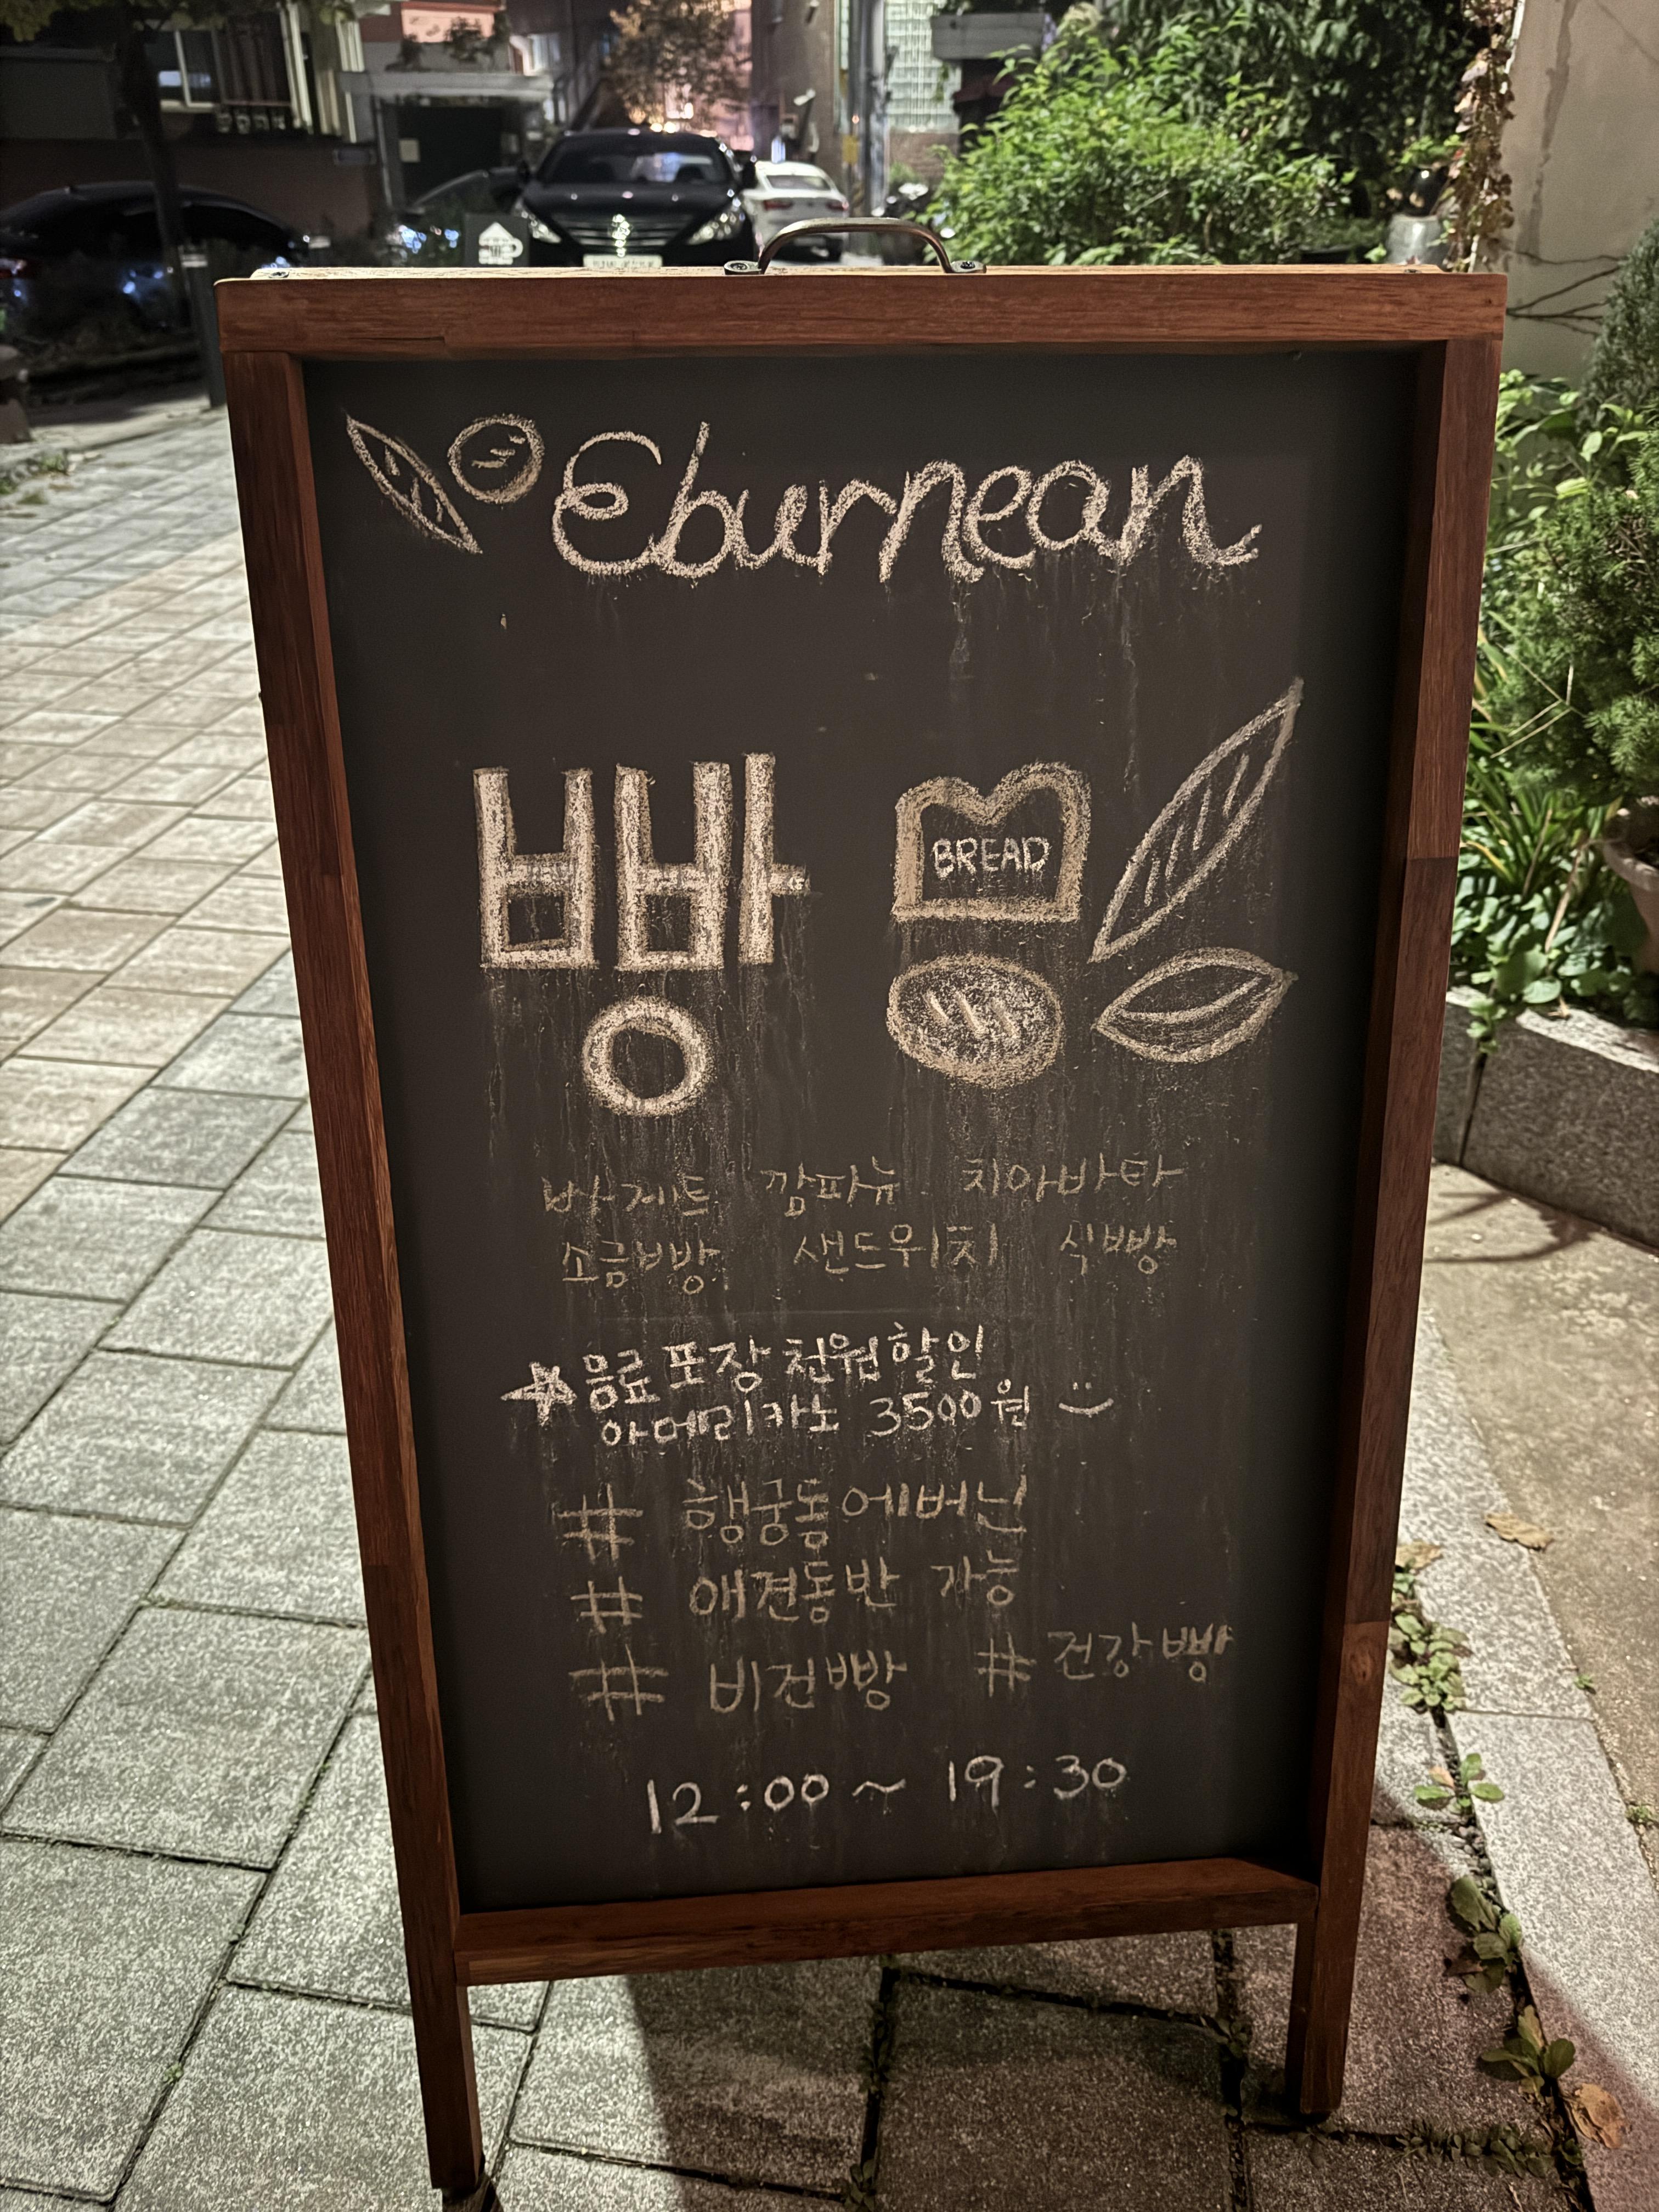 Eburnean
빵
BREAD
바게트 깜파뉴 치아바타
소금빵 샌드위치 식빵
음료 포장 천원 할인
아메리카노 3500원
# 행궁동에버닌
# 애견동반 가능
# 비건빵 # 건강빵
12:00 ~ 19:30